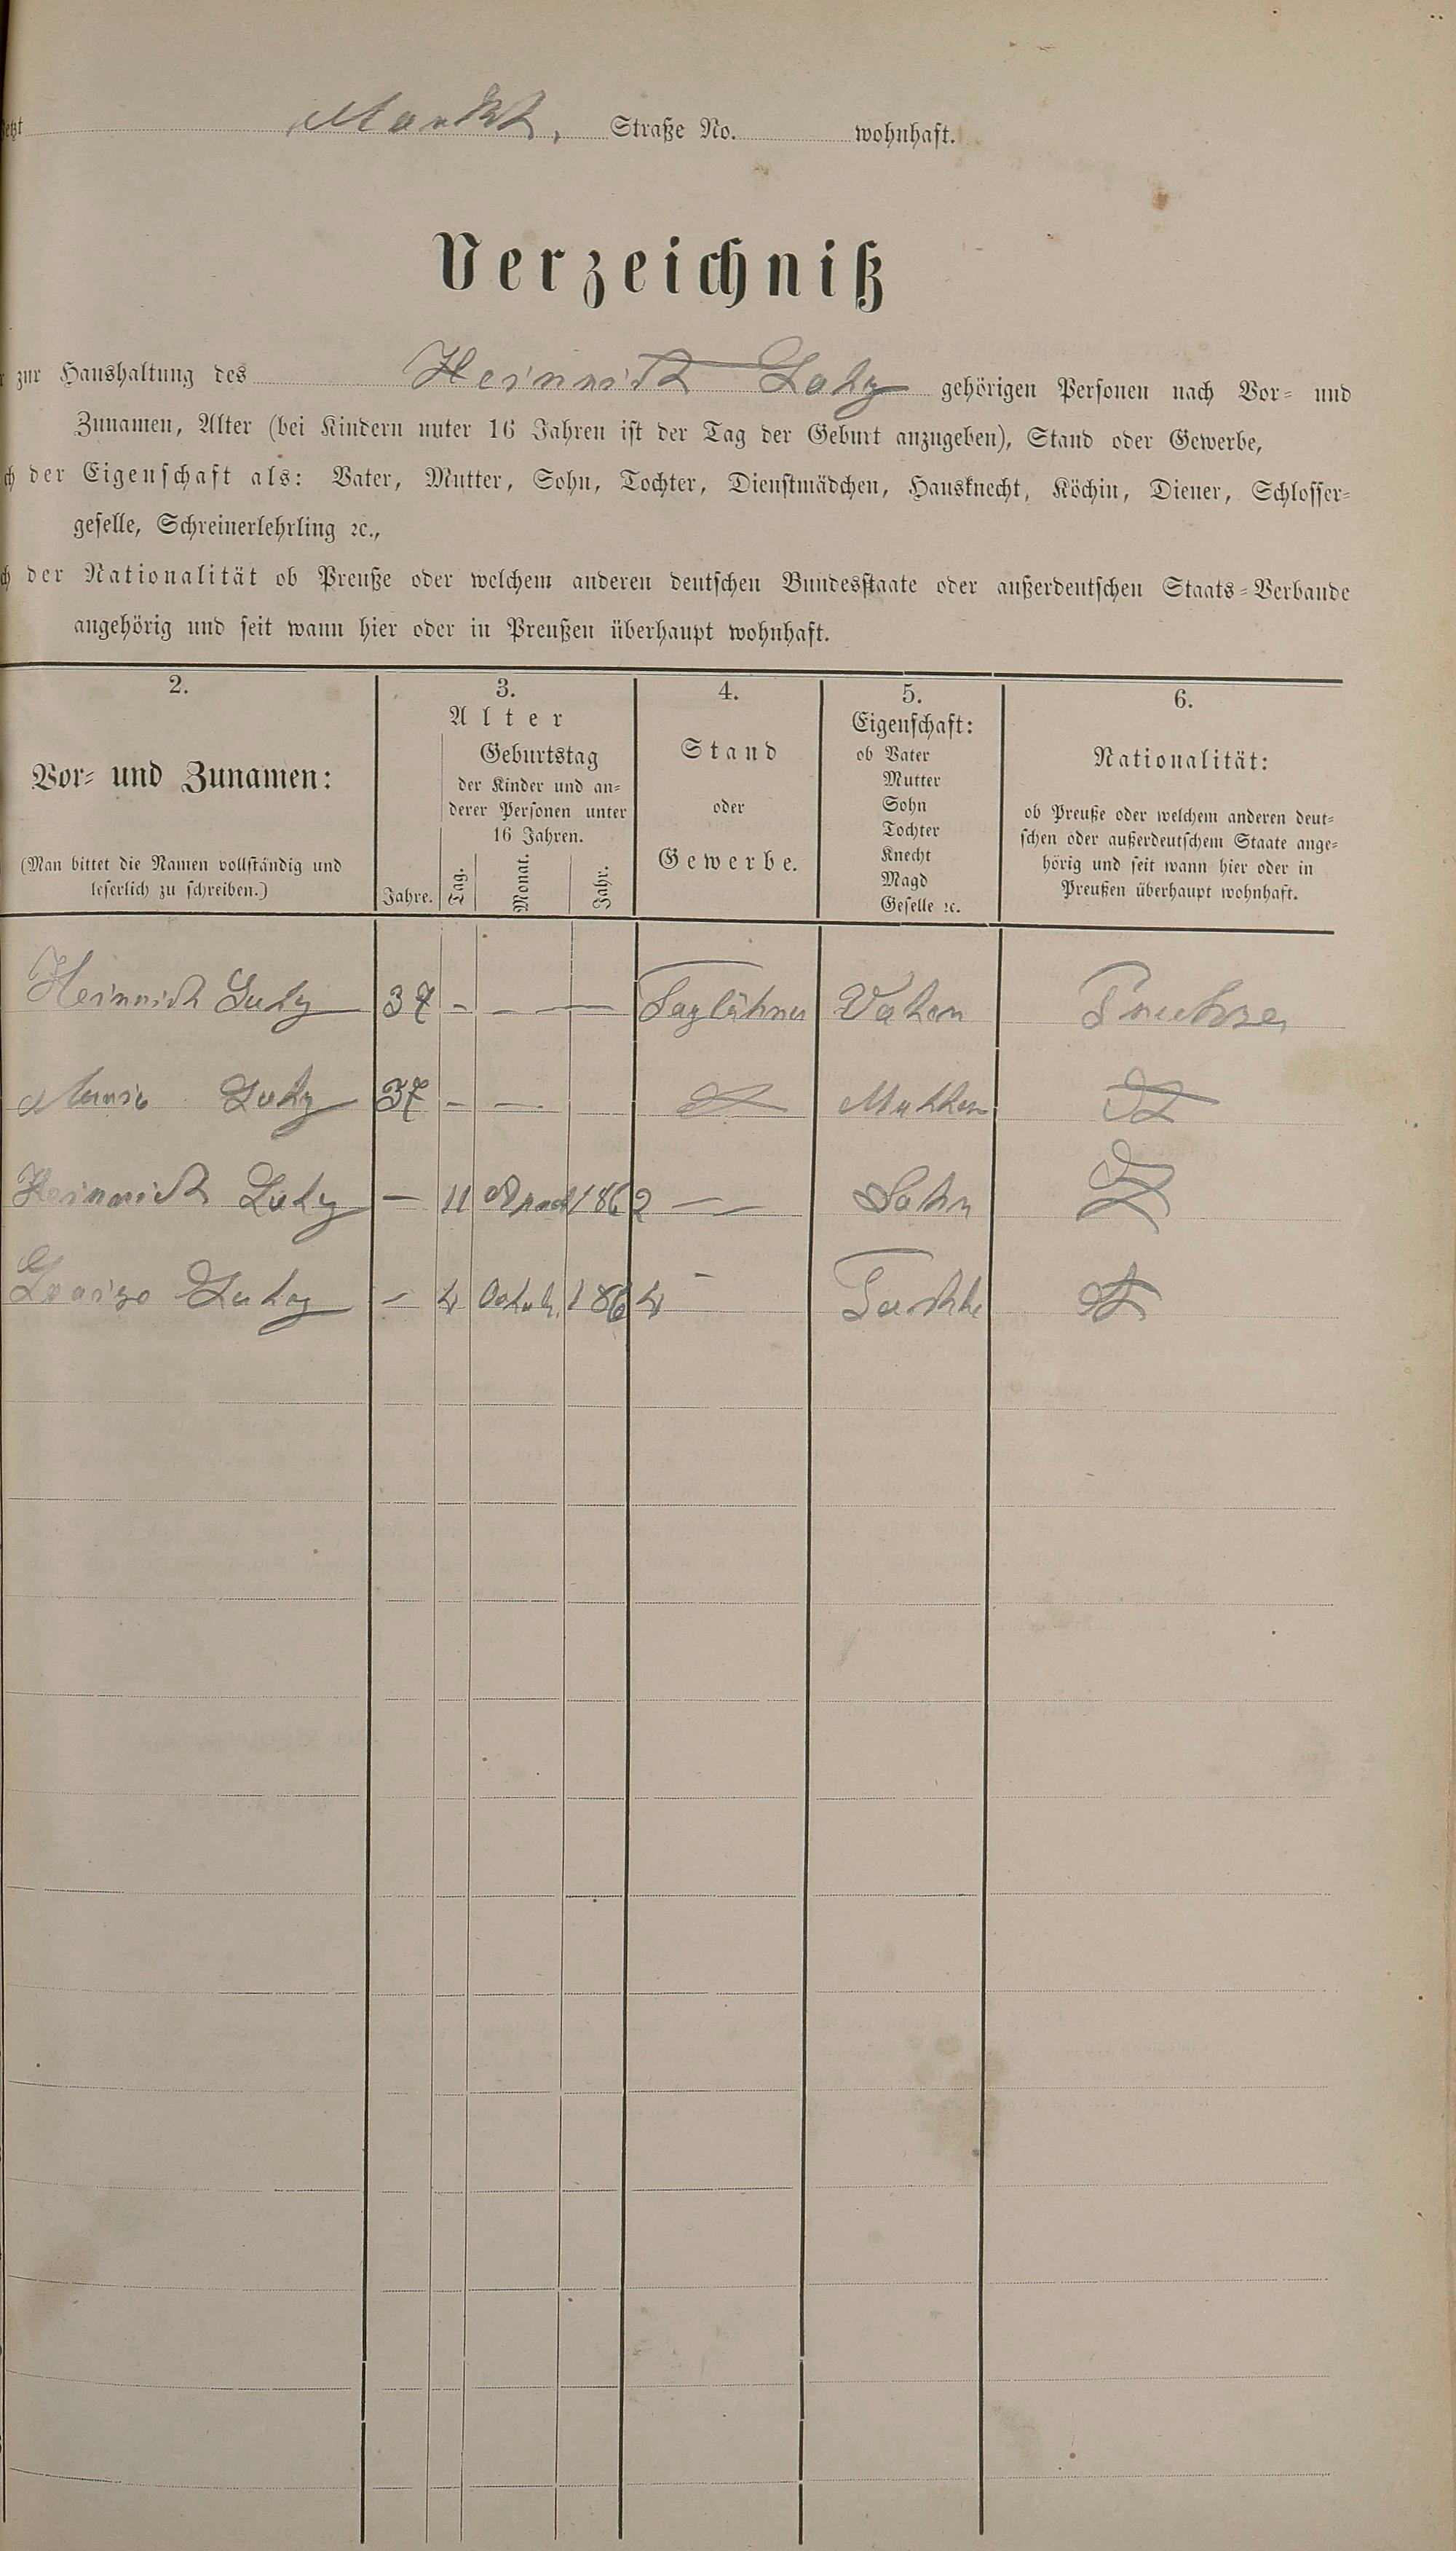 jetzt Markt, Straße No. wohnhaft.
Verzeichniß
zur Haushaltung des Heinrich Luhy gehörigen Personen nach Vor- und
Zunamen, Alter (bei Kindern unter 16 Jahren ist der Tag der Geburt anzugeben), Stand oder Gewerbe,
der Eigenschaft als: Vater, Mutter, Sohn, Tochter, Dienstmädchen, Hausknecht, Köchin, Diener, Schlosser-
geselle, Schreinerlehrling ꝛc.,
der Nationalität ob Preuße oder welchem anderen deutschen Bundesstaate oder außerdeutschen Staats-Verbande
angehörig und seit wann hier oder in Preußen überhaupt wohnhaft.
2.
Vor- und Zunamen:
(Man bittet die Namen vollständig und
leserlich zu schreiben.)
3.
Alter
Geburtstag
der Kinder und an-
derer Personen unter
16 Jahren.
Jahre. Tag. Monat. Jahr.
4.
Stand
oder
Gewerbe.
5.
Eigenschaft:
ob Vater
Mutter
Sohn
Tochter
Knecht
Magd
Geselle ꝛc.
6.
Nationalität:
ob Preuße oder welchem anderen deut-
schen oder außerdeutschem Staate ange-
hörig und seit wann hier oder in
Preußen überhaupt wohnhaft.
Heinrich Luhy 37 - - - Taglöhner Vater Preuhse
Maria Luhy 37 - - Mutter
Heinrich Luhy - 11 1862 - Sohn
Louise Luhy - 4 Octob. 1864 - Tochte